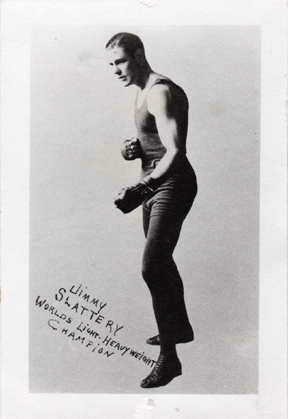 Jimmy
SLATTERY
WORLDS LIGHT-HEAVYWEIGHT
CHAMPION